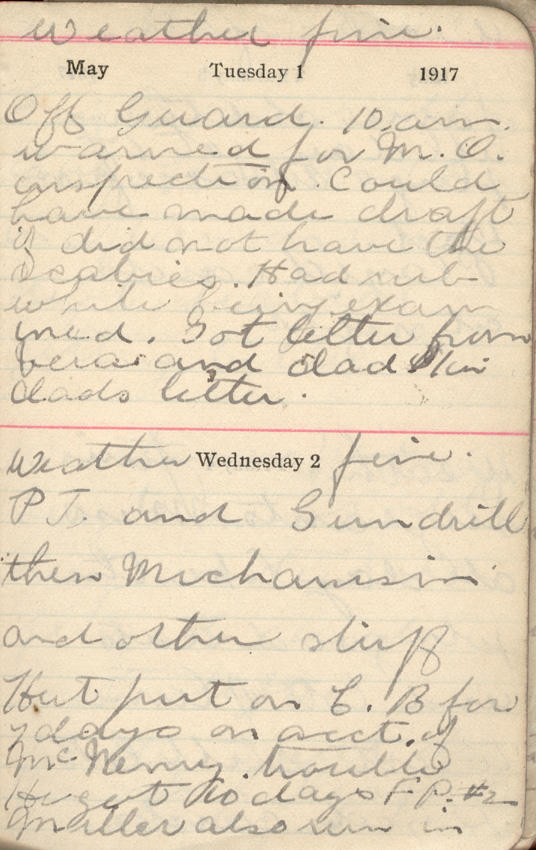 Weather fine.
May Tuesday 1 1917
Off Guard. 10. a.m.
warned for M. O.
inspection. Could
have made draft
if did not have the
scabies. Had rub
while being exam
ined. Got letter from
Vera and dad $1 in
dads letter.
Weather Wednesday 2 fine.
P T. and Gundrill
then Mechanism
and other stuff
Hut put on C. B for
7 days on acct. of
McNenny trouble
He got 10 days F P. #2
Miller also run in